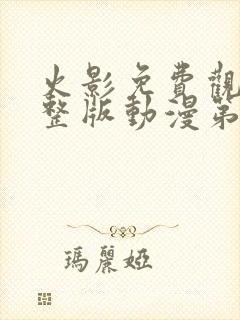 火影免費觀
整版動漫第
瑪麗婭